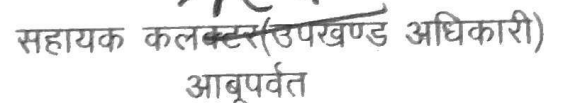 सहायक कलक्टर(उपखण्ड अधिकारी)
आबूपर्वत